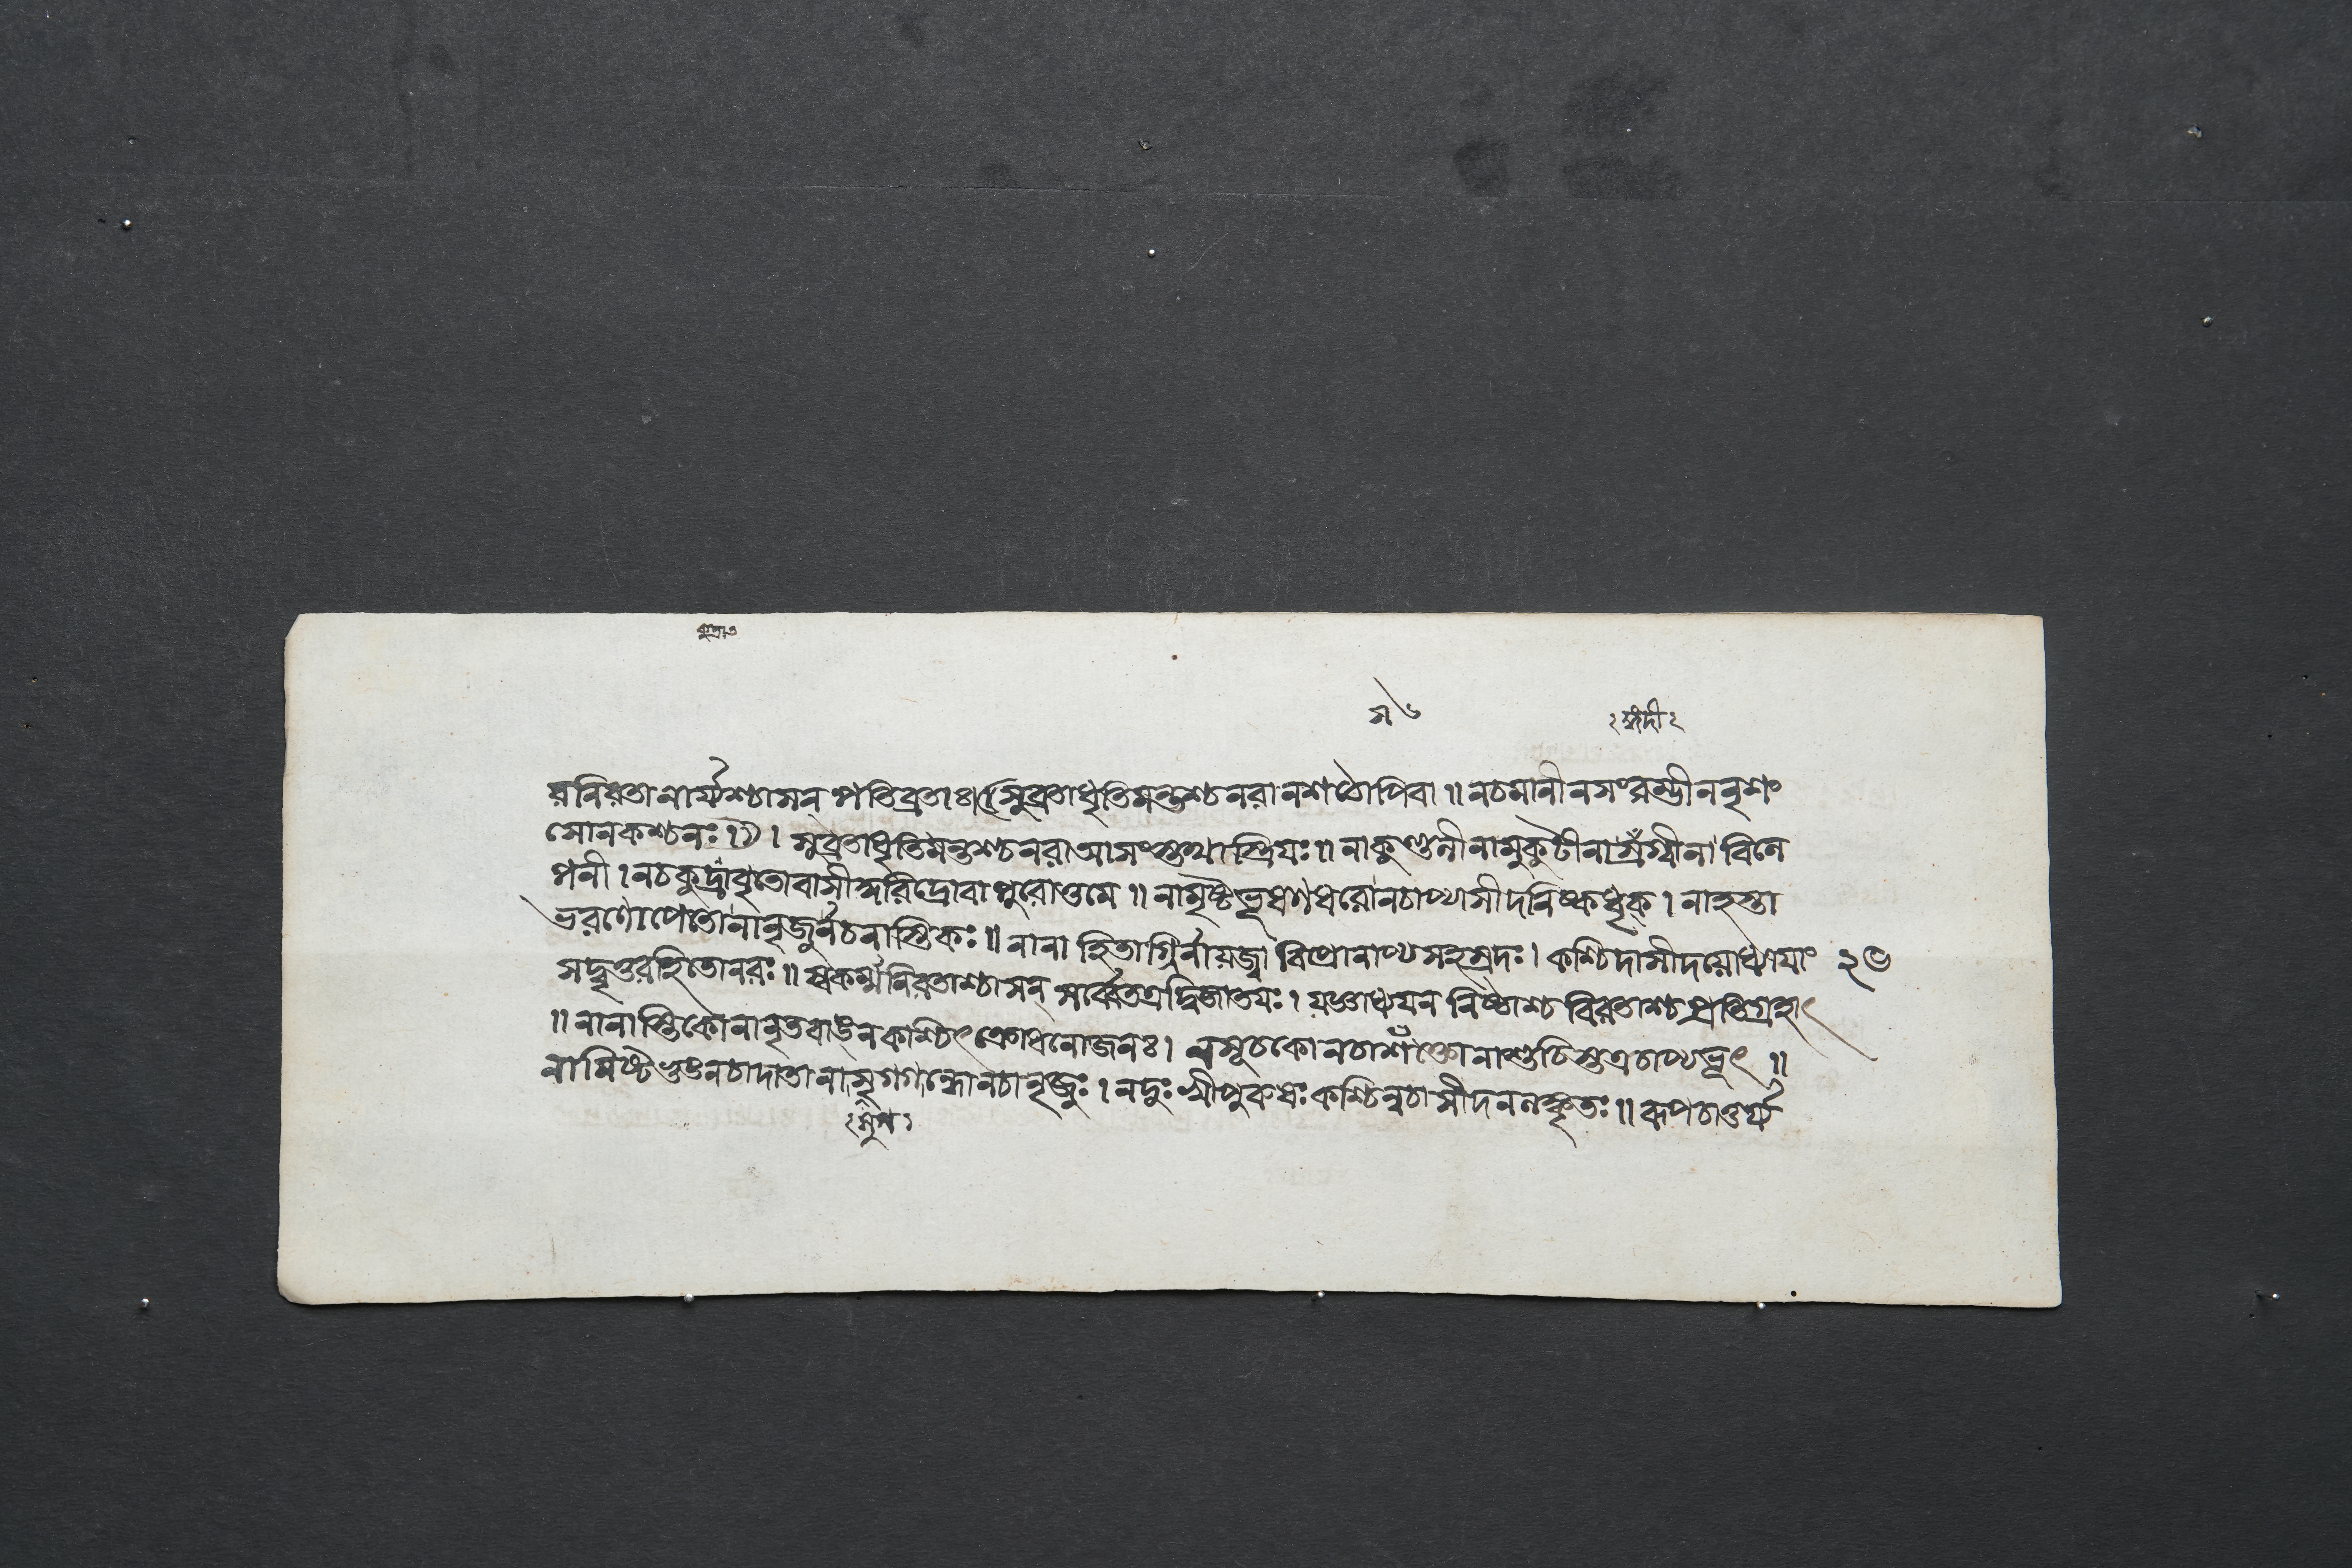 রনিরতানার্য্যশ্চাসন্ পতিব্রতাঃ।(সুব্রতাধৃতিমন্তশ্চনরানশঠোপিবা॥নচমানীনসংরম্ভীননৃশং
সোনকশ্চনঃ।)।সুব্রতাধৃতিমন্তশ্চনরাআসংস্তথাস্ত্রিযঃ॥নাকুণ্ডলীনামুকুটীনাস্রগ্বীনাবিলে
পনী।নচক্ষুদ্রাবৃতোবাসীদ্দরিদ্রোবাপুরোত্তমে॥নামৃষ্টভূষণধরোনচাপ্যাসীদনিষ্কধৃক্।নাহস্তা
ভরণোপেতোনানৃজুর্নচনাস্তিকঃ॥নানাহিতাগ্নির্নাযজ্বা বিপ্রোনাপ্যসহস্রদঃ।কশ্চিদাসীদযোধ্যাযাং
সদ্বৃত্তরহিতোনরঃ॥স্বকর্ম্মনিরতাশ্চাসন্ সর্ব্বেতত্রদ্বিজাতযঃ।যজ্ঞাধ্যযন নিষ্ঠাশ্চ বিরতাশ্চপ্রতিগ্রহাৎ
॥নানাস্তিকোনানৃতবাঙ্নকশ্চিৎক্রোধনোজনঃ। নসূচকোনচাশক্তোনাশুচিস্তত্রচাপ্যভূৎ॥
নামিষ্টভুঙ্নচাদাতানাসুগগন্ধোনচানৃজুঃ।নদুঃখীপুরুষঃকশ্চিন্নচাসীদনলঙ্কৃতঃ॥রূপচাতুর্য্য